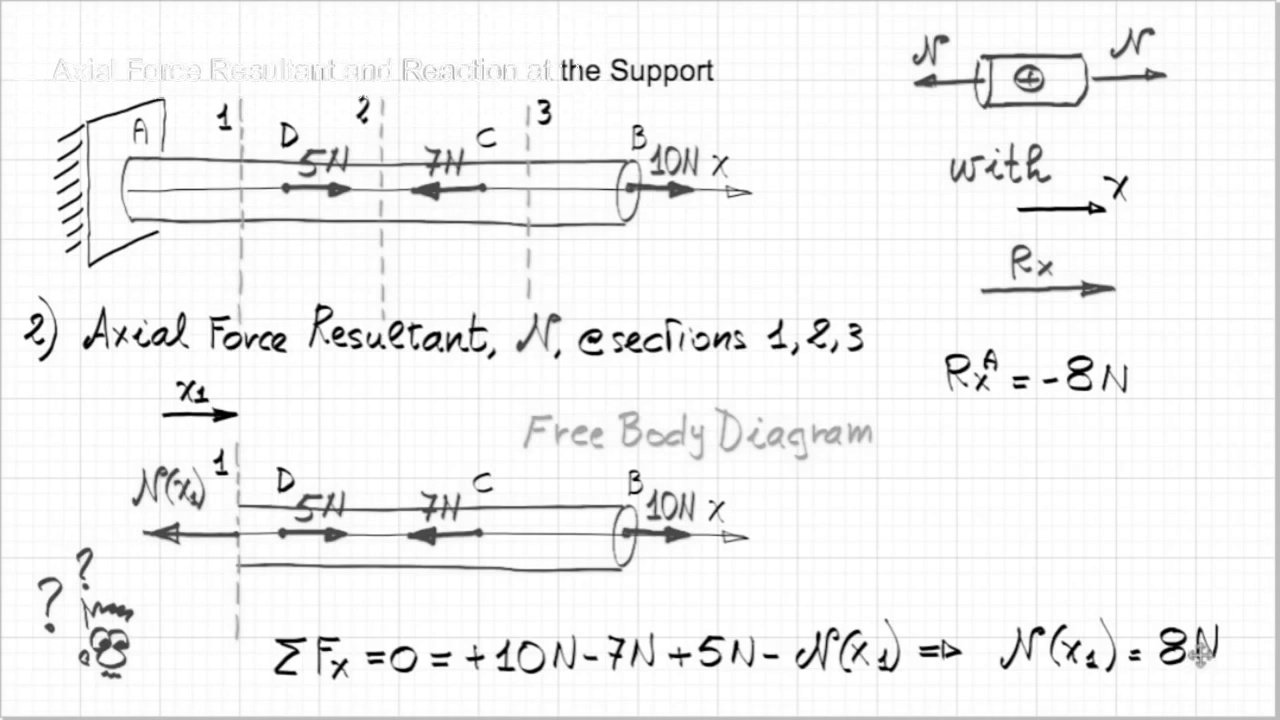 Axial Force Resultant and Reaction at the Support
N N
1 2 3
A D C B
5N 7N 10N x
with
x
Rx
2) Axial Force Resultant, N, @sections 1,2,3
RxA = -8N
x1
Free Body Diagram
1 D C B
N(x1) 5N 7N 10N x
? ?
ΣFx =0 = +10N-7N+5N- N(x1) => N(x1) = 8N